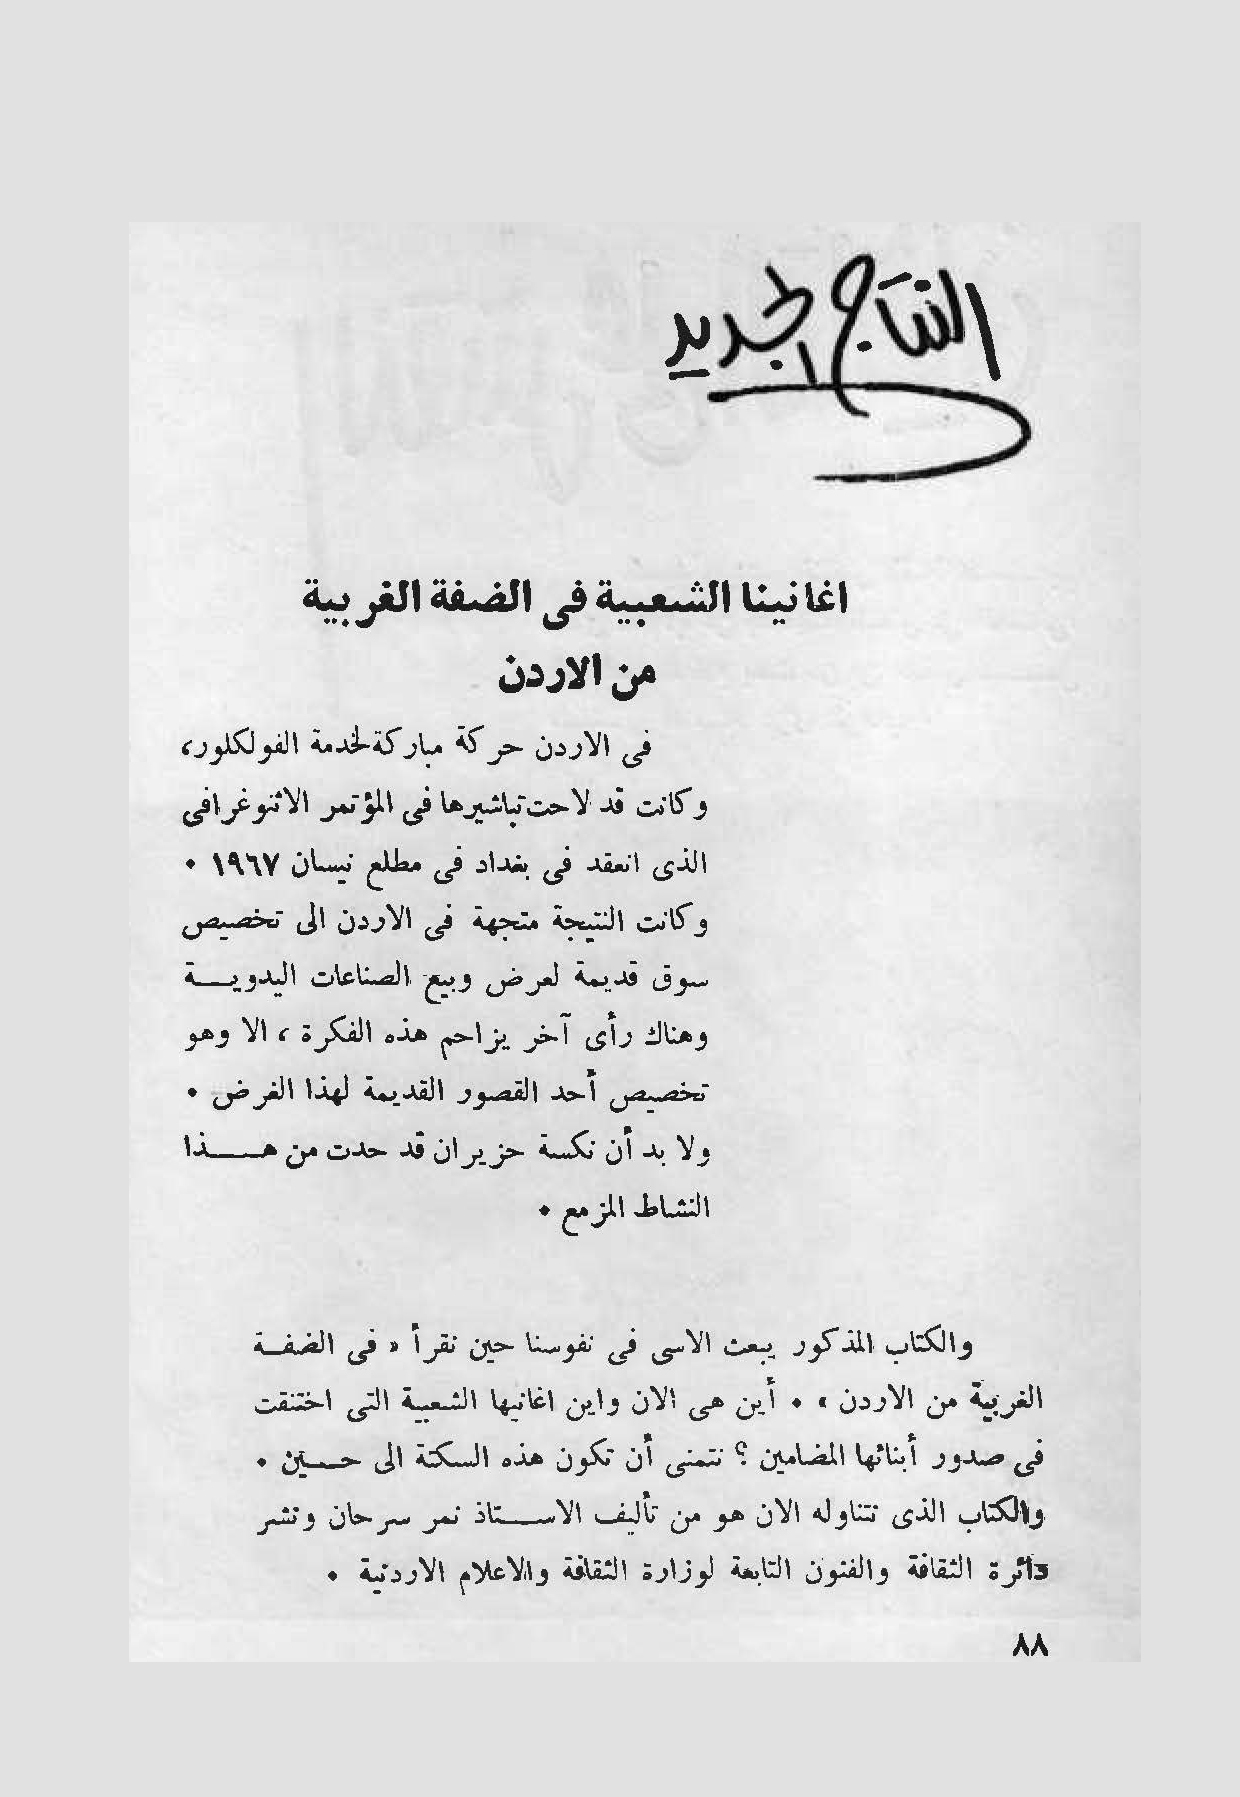 النتاج الجديد
اغانينا الشعبية فى الضفة الغربية
من الاردن
فى الاردن حركة مباركة لخدمة الفولكلور،
وكانت قد لاحت تباشيرها فى المؤتمر الاثنوغرافى
الذى انعقد فى بغداد فى مطلع نيسان ١٩٦٧ ٠
وكانت النتيجة متجهة فى الاردن الى تخصيص
سوق قديمة لعرض وبيع الصناعات اليدويــة
وهناك رأى آخر يزاحم هذه الفكرة ، الا وهو
تخصيص أحد القصور القديمة لهذا الغرض ٠
ولا بد أن نكسة حزيران قد حدت من هــــذا
النشاط المزمع ٠
والكتاب المذكور يبعث الاسى فى نفوسنا حين نقرأ « فى الضفــة
الغربية من الاردن » ٠ أين هى الان واين اغانيها الشعبية التى اختنقت
فى صدور أبنائها المضامين ؟ نتمنى أن تكون هذه السكتة الى حــين ٠
والكتاب الذى نتناوله الان هو من تأليف الاســـتاذ نمر سرحان ونشر
دائرة الثقافة والفنون التابعة لوزارة الثقافة والاعلام الاردنية ٠
٨٨